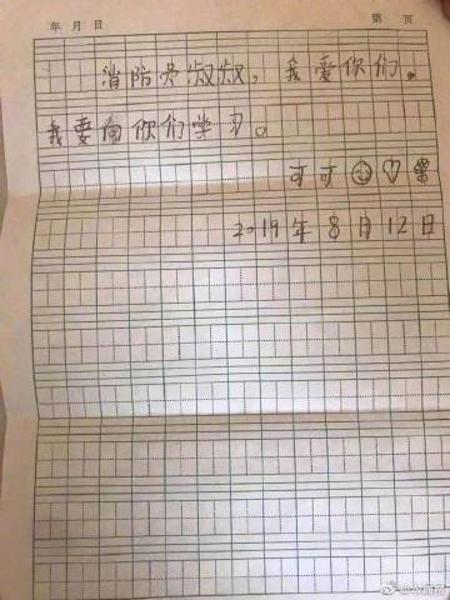 年 月 日 第 页
消防员叔叔,我爱你们。
我要向你们学习。
可可
2019年8月12日